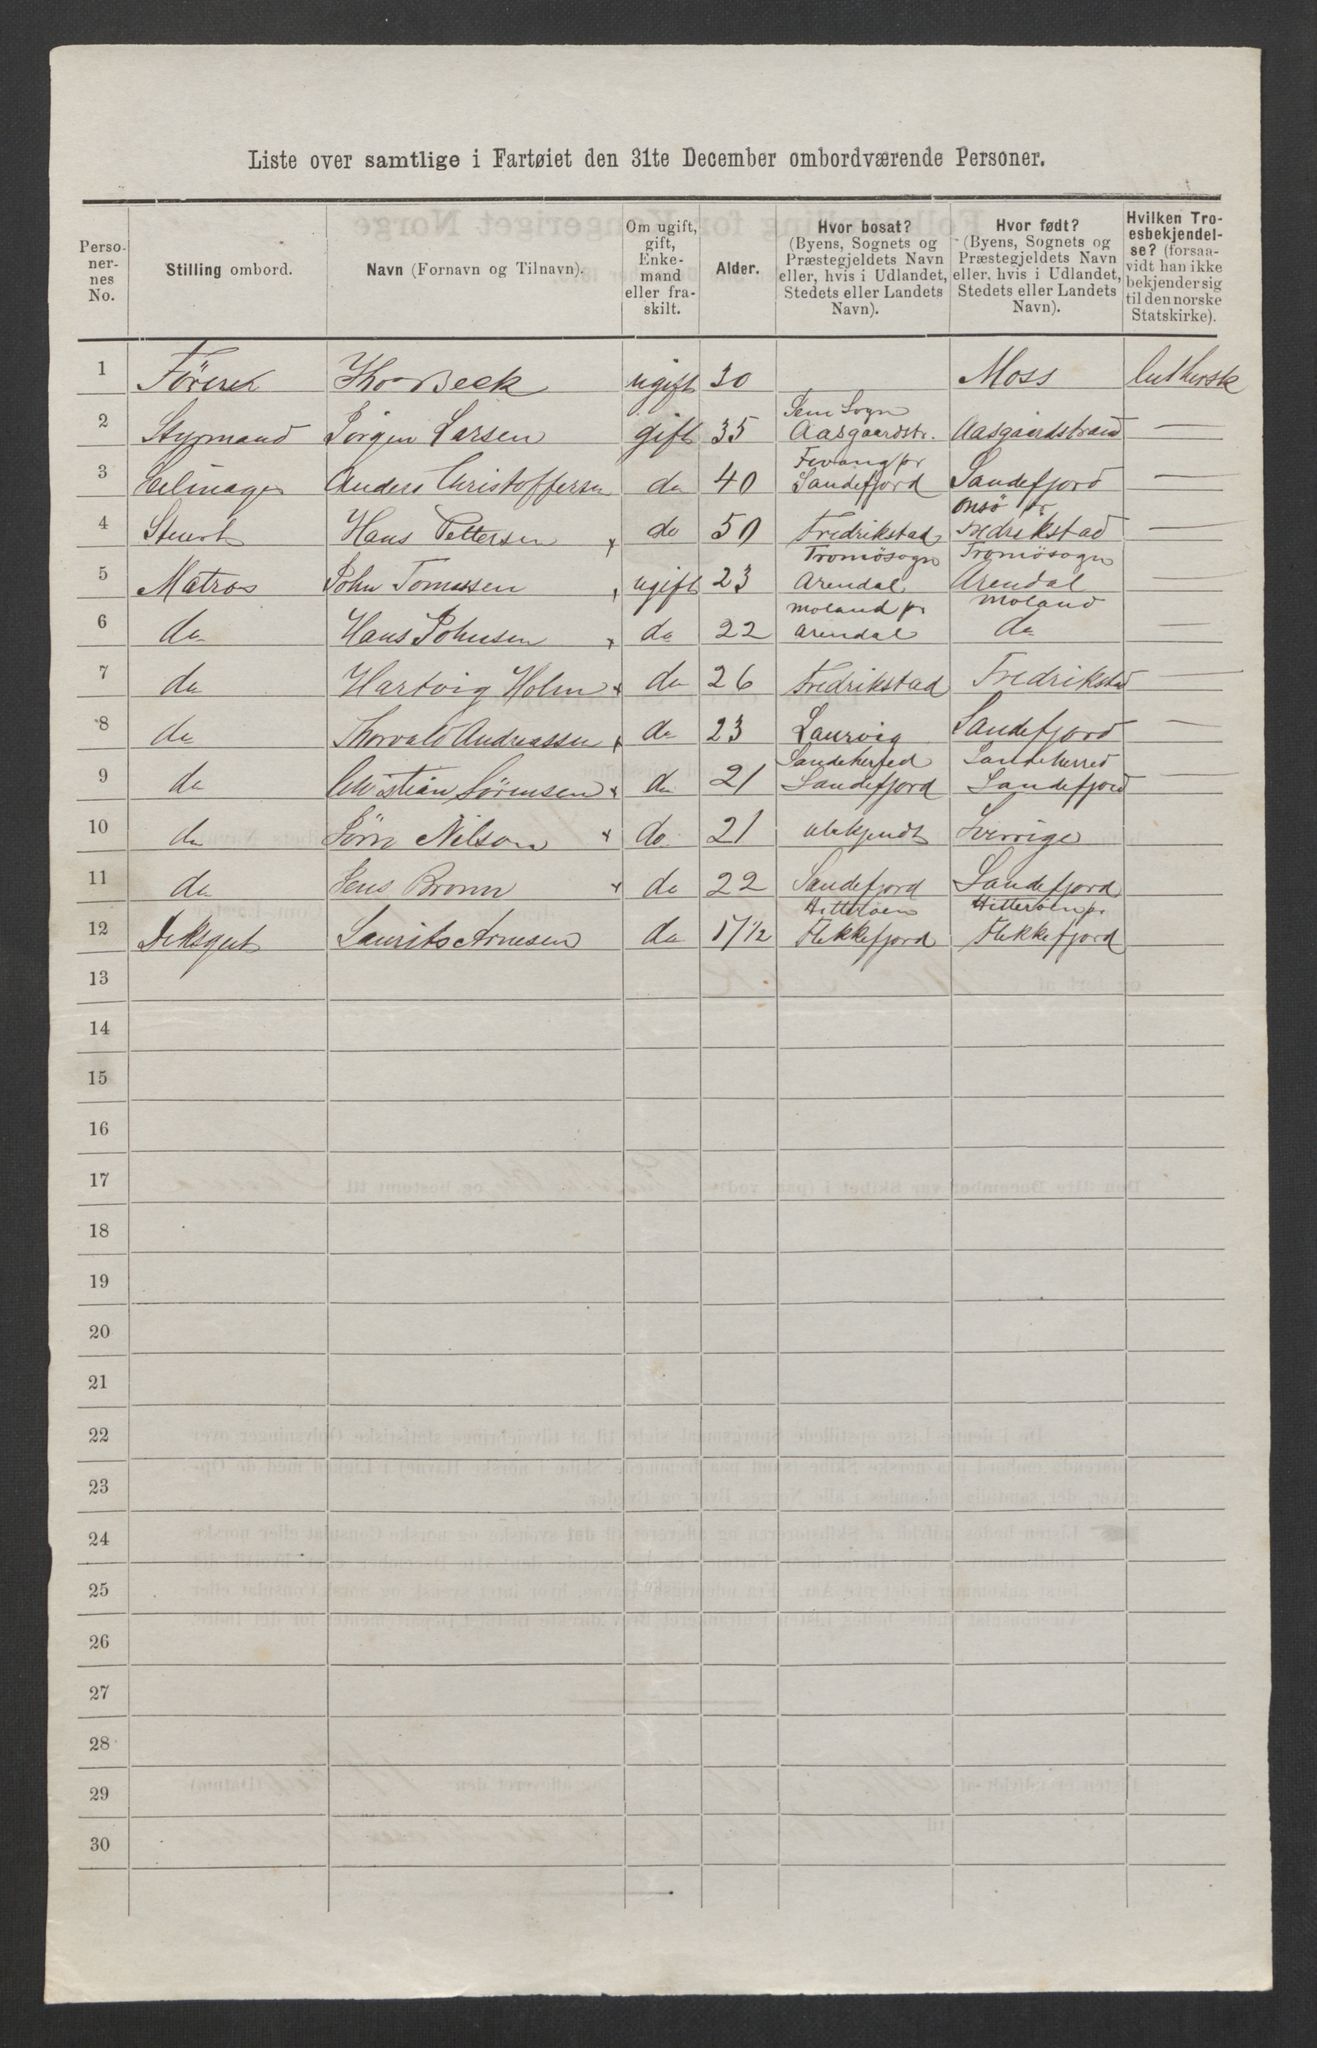 Liste over samtlige i Fartøiet den 31te December ombordværende Personer.
Personernes No. | Stilling ombord. | Navn (Fornavn og Tilnavn). | Om ugift, gift, Enkemand eller fraskilt. | Alder. | Hvor bosat? (Byens, Sognets og Præstegjeldets Navn eller, hvis i Udlandet, Stedets eller Landets Navn). | Hvor født? (Byens, Sognets og Præstegjeldets Navn eller, hvis i Udlandet, Stedets eller Landets Navn). | Hvilken Troesbekjendelse? (forsaavidt han ikke bekjender sig til den norske Statskirke).
1 Fører Thor Beck ugift 30 Moss luthersk
2 Styrmand Jørgen Larsen gift 35 Sem Sogn Aasgaardstr. Aasgaardstrand —
3 Seilmager Anders Christoffersen do 40 Fevang pr Sandefjord Sandefjord —
4 Stuert Hans Pettersen x do 50 Fredrikstad Onsö pr Fredrikstad —
5 Matros John Tomessen ugift 23 Tromösogn Arendal Tromösogn Arendal —
6 do Hans Johnsen x do 22 Moland pr Arendal Moland do —
7 do Hartvig Holm x do 26 Fredrikstad Fredrikstad —
8 do Thorvald Andreassen x do 23 Laurvig Sandefjord —
9 do Christian Sørensen x do 21 Sandeherred Sandefjord Sandeherred Sandefjord —
10 do Sörn Nilson x do. 21 ubekjendt Sverrige —
11 do Jens Bronn x do 22 Sandefjord Sandefjord —
12 Deksgut Laurits Arnesen do 17 1/2 Hitteröen Flekkefjord Hitteröen pr Flekkefjord
13
14
15
16
17
18
19
20
21
22
23
24
25
26
27
28
29
30